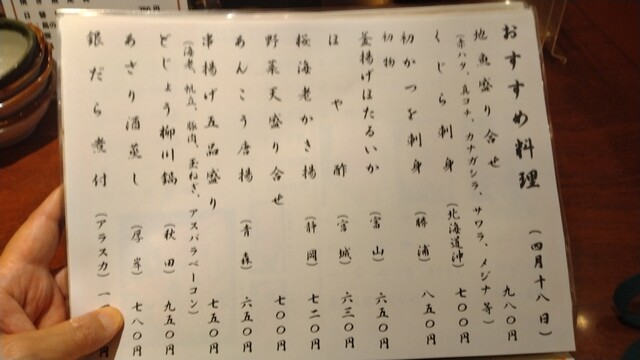 おすすめ料理 (四月十八日)
地魚盛り合せ 九八〇円
(赤ハタ、真コチ、カナガシラ、サワラ、メジナ等)
くじら刺身 (北海道沖) 七〇〇円
初かつを刺身 (勝浦) 八五〇円
初物
釜揚げほたるいか (富山) 六五〇円
ほや酢 (宮城) 六三〇円
桜海老かき揚 (静岡) 七二〇円
野菜天盛り合せ 七〇〇円
あんこう唐揚 (青森) 六五〇円
串揚げ五品盛り 七五〇円
(海老、帆立、豚肉、玉ねぎ、アスパラベーコン)
どじょう柳川鍋 (秋田) 九五〇円
あさり酒蒸し (厚岸) 七八〇円
銀だら煮付 (アラスカ) 一 円